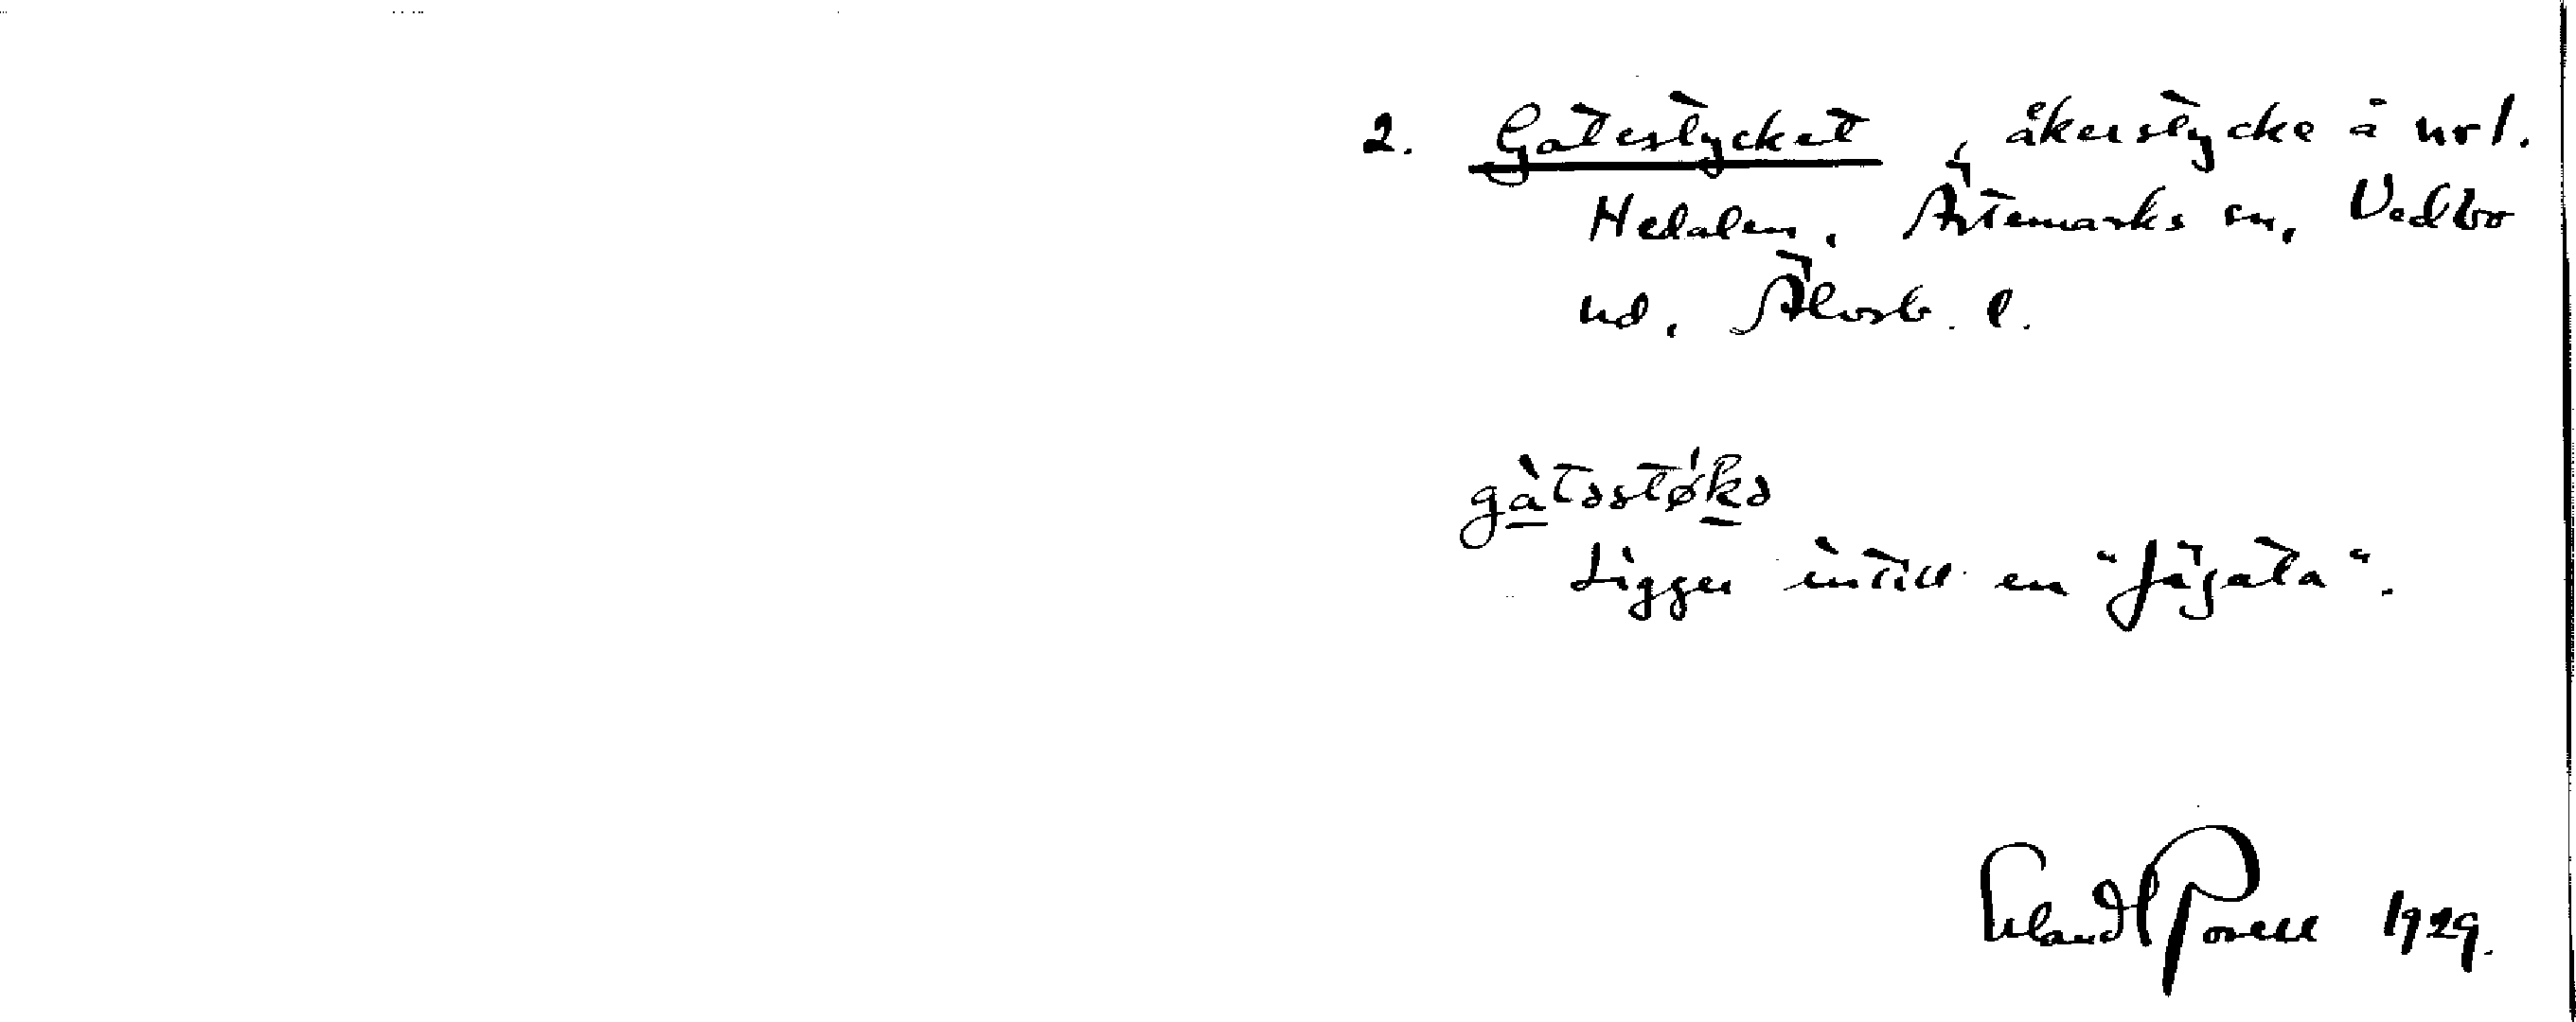 2. Gatestycket, åkerstycke å nr 1.
Hedalen, Ärtemarks sn, Vedbo
hd, Älvsb. l.
gàtəstø'kə
Ligger intill en "fägata".
Erland Rosell 1929.